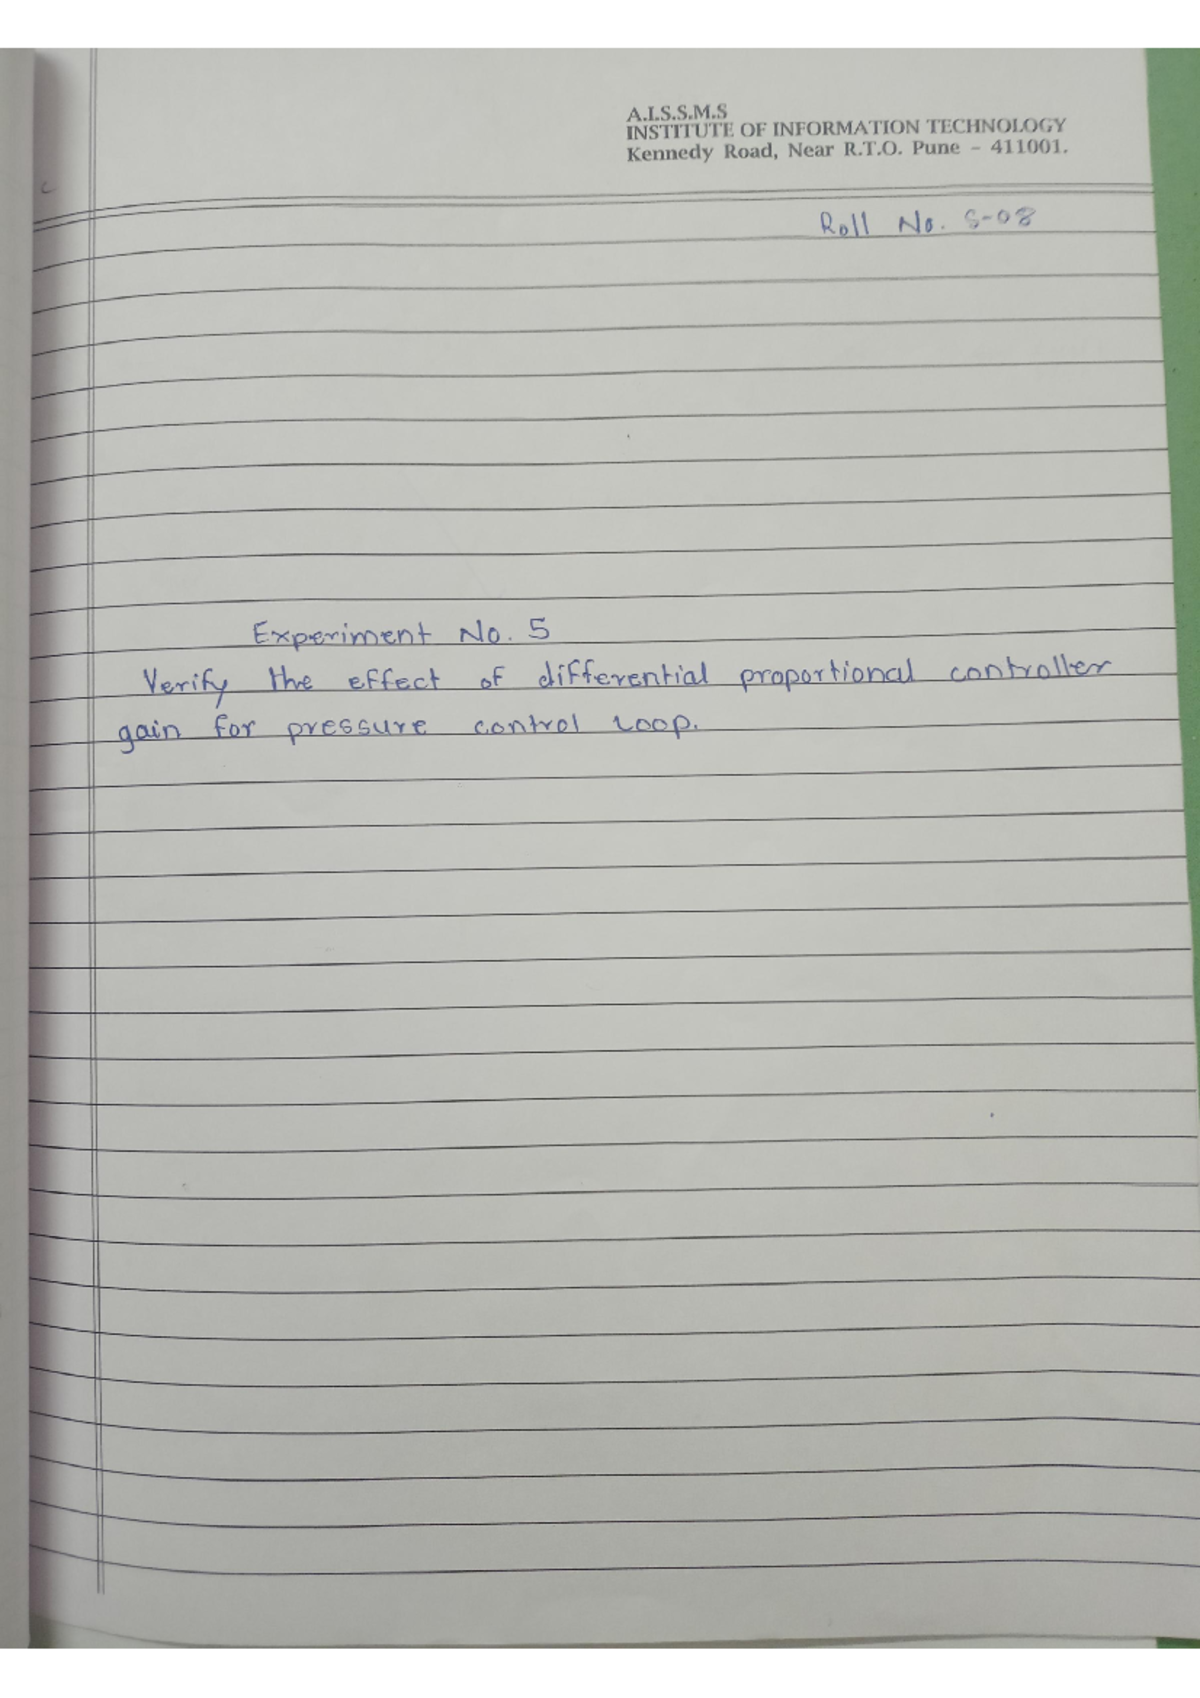 A.I.S.S.M.S
INSTITUTE OF INFORMATION TECHNOLOGY
Kennedy Road, Near R.T.O. Pune - 411001.
Roll No. S-08
Experiment No. 5
Verify the effect of differential proportional controller
gain for pressure control loop.